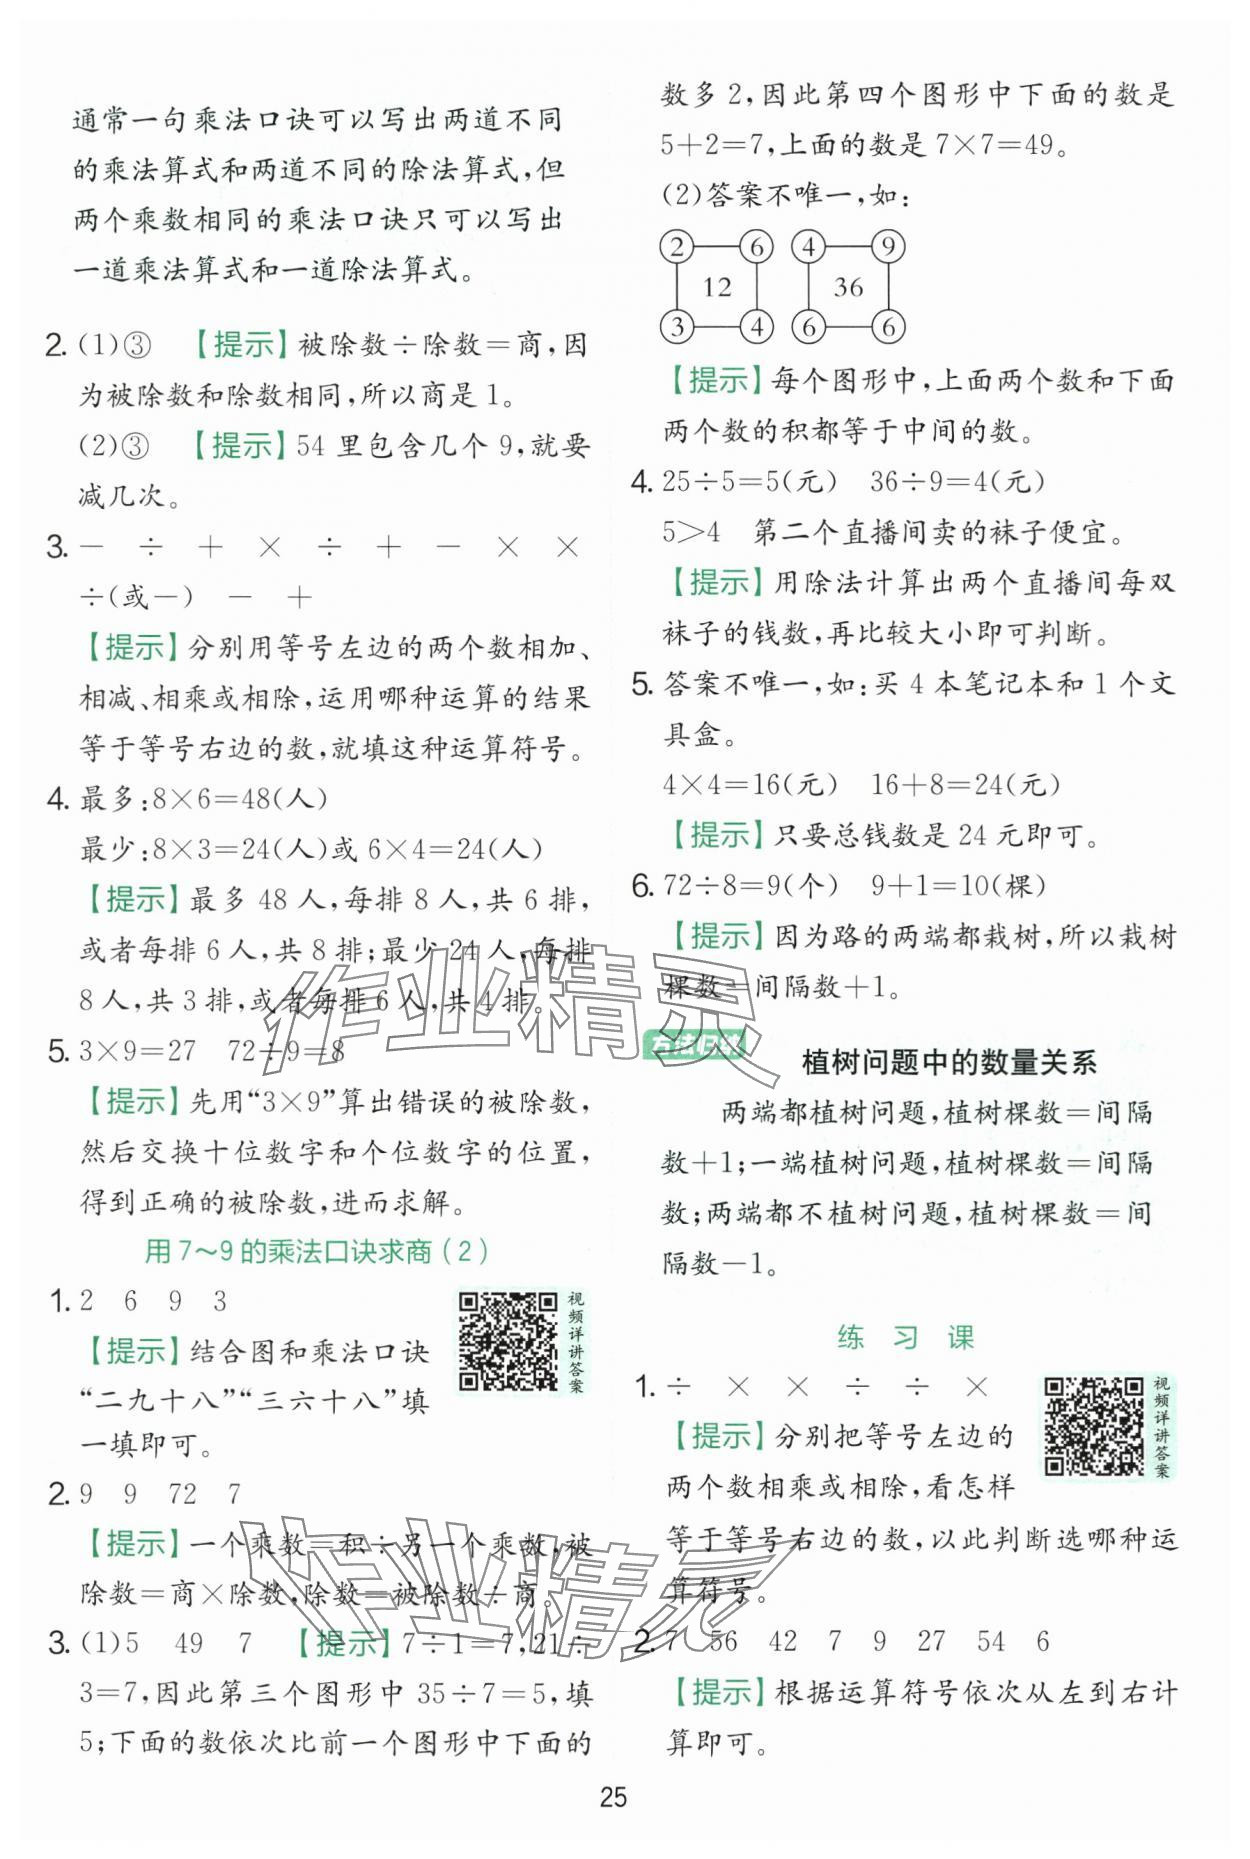 通常一句乘法口诀可以写出两道不同
的乘法算式和两道不同的除法算式,但
两个乘数相同的乘法口诀只可以写出
一道乘法算式和一道除法算式。
2. (1)③ 【提示】被除数÷除数=商,因
为被除数和除数相同,所以商是1。
(2)③ 【提示】54里包含几个9,就要
减几次。
3. － ÷ ＋ × ÷ ＋ － × ×
÷(或－) － ＋
【提示】分别用等号左边的两个数相加、
相减、相乘或相除,运用哪种运算的结果
等于等号右边的数,就填这种运算符号。
4. 最多:8×6=48(人)
最少:8×3=24(人)或6×4=24(人)
【提示】最多48人,每排8人,共6排,
或者每排6人,共8排;最少24人,每排
8人,共3排,或者每排6人,共4排。
5. 3×9=27 72÷9=8
【提示】先用“3×9”算出错误的被除数,
然后交换十位数字和个位数字的位置,
得到正确的被除数,进而求解。
用7～9的乘法口诀求商(2)
1. 2 6 9 3
视频详讲答案
【提示】结合图和乘法口诀
“二九十八”“三六十八”填
一填即可。
2. 9 9 72 7
【提示】一个乘数=积÷另一个乘数,被
除数=商×除数,除数=被除数÷商。
3. (1)5 49 7 【提示】7÷1=7,21÷
3=7,因此第三个图形中35÷7=5,填
5;下面的数依次比前一个图形中下面的
数多2,因此第四个图形中下面的数是
5+2=7,上面的数是7×7=49。
(2)答案不唯一,如:
2 6 4 9
12 36
3 4 6 6
【提示】每个图形中,上面两个数和下面
两个数的积都等于中间的数。
4. 25÷5=5(元) 36÷9=4(元)
5>4 第二个直播间卖的袜子便宜。
【提示】用除法计算出两个直播间每双
袜子的钱数,再比较大小即可判断。
5. 答案不唯一,如:买4本笔记本和1个文
具盒。
4×4=16(元) 16+8=24(元)
【提示】只要总钱数是24元即可。
6. 72÷8=9(个) 9+1=10(棵)
【提示】因为路的两端都栽树,所以栽树
棵数=间隔数+1。
方法归纳
植树问题中的数量关系
两端都植树问题,植树棵数=间隔
数+1;一端植树问题,植树棵数=间隔
数;两端都不植树问题,植树棵数=间
隔数－1。
练习课
1. ÷ × × ÷ ÷ ×
视频详讲答案
【提示】分别把等号左边的
两个数相乘或相除,看怎样
等于等号右边的数,以此判断选哪种运
算符号。
2. 7 56 42 7 9 27 54 6
【提示】根据运算符号依次从左到右计
算即可。
25
作业精灵
作业精灵